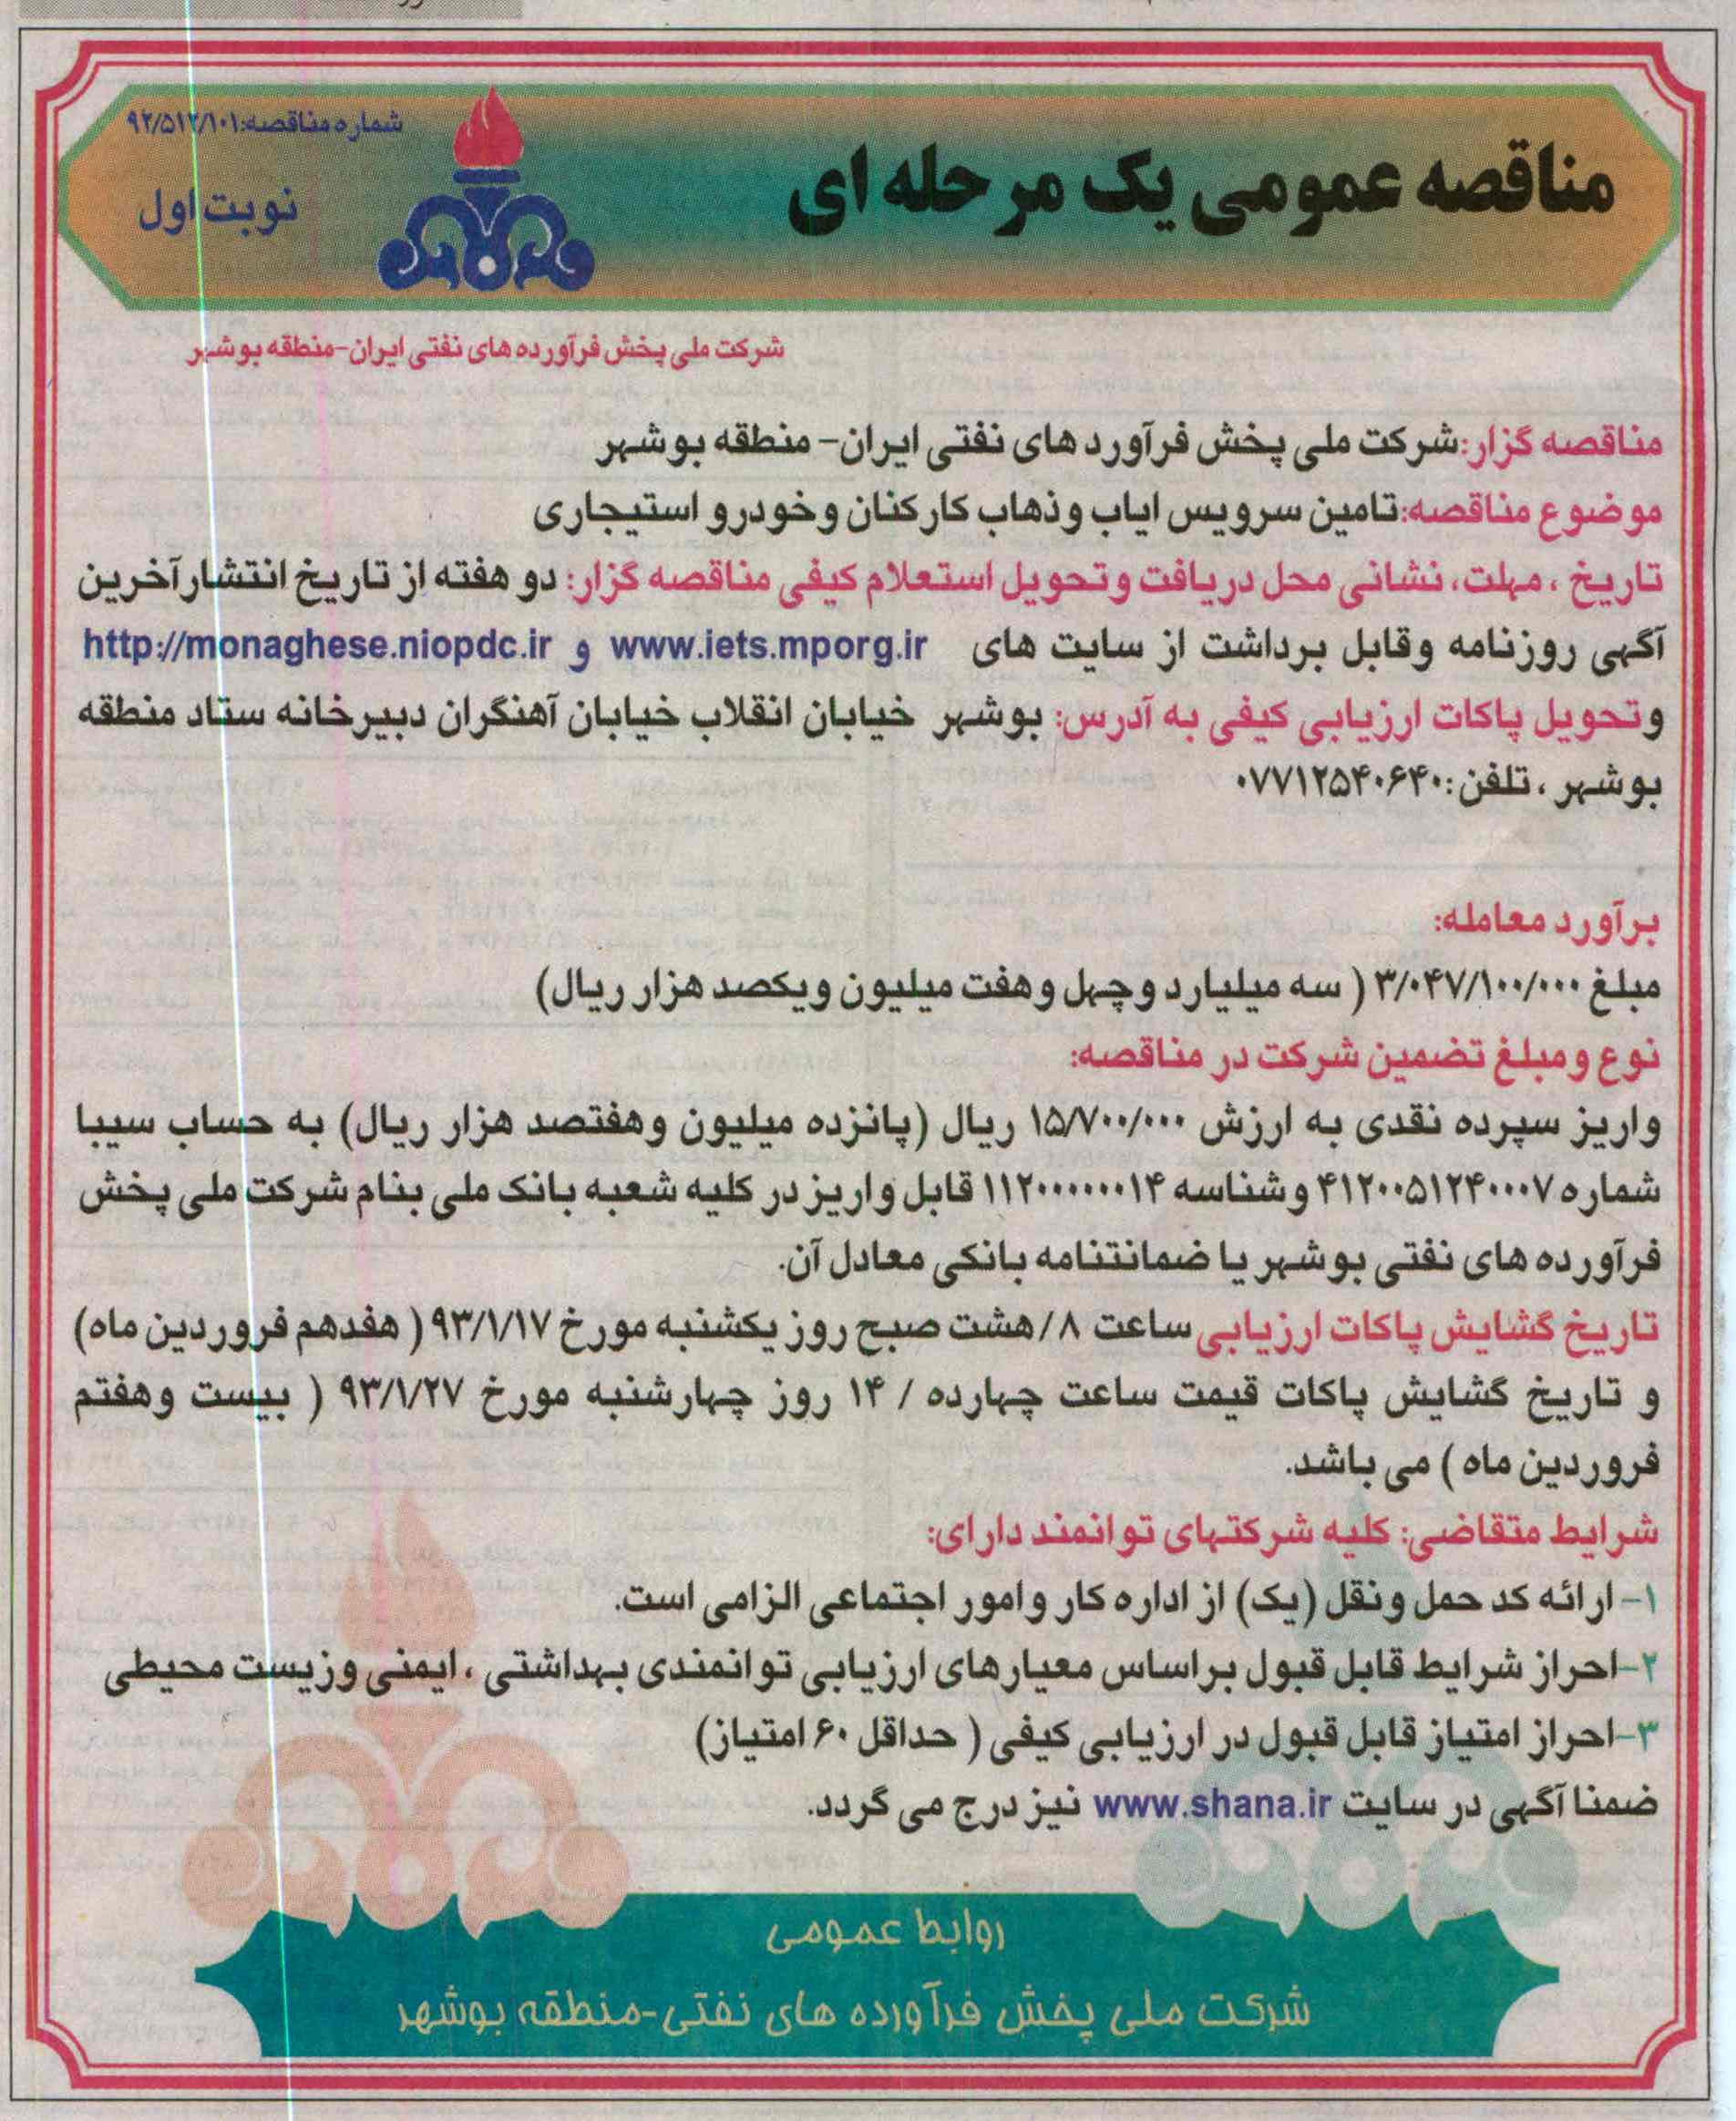 شماره مناقصه:۹۲/۵۱۲/۱۰۱
مناقصه عمومی یک مرحله ای
نوبت اول
شرکت ملی پخش فرآورده های نفتی ایران-منطقه بوشهر
مناقصه گزار:شرکت ملی پخش فرآورد های نفتی ایران- منطقه بوشهر
موضوع مناقصه:تامین سرویس ایاب وذهاب کارکنان وخودرو استیجاری
تاریخ ، مهلت، نشانی محل دریافت وتحویل استعلام کیفی مناقصه گزار: دو هفته از تاریخ انتشارآخرین
آگهی روزنامه وقابل برداشت از سایت های www.iets.mporg.ir و http://monaghese.niopdc.ir
وتحویل پاکات ارزیابی کیفی به آدرس: بوشهر خیابان انقلاب خیابان آهنگران دبیرخانه ستاد منطقه
بوشهر ، تلفن:۰۷۷۱۲۵۴۰۶۴۰
برآورد معامله:
مبلغ ۳/۰۴۷/۱۰۰/۰۰۰ ( سه میلیارد وچهل وهفت میلیون ویکصد هزار ریال)
نوع ومبلغ تضمین شرکت در مناقصه:
واریز سپرده نقدی به ارزش ۱۵/۷۰۰/۰۰۰ ریال (پانزده میلیون وهفتصد هزار ریال) به حساب سیبا
شماره ۴۱۲۰۰۵۱۲۴۰۰۰۷ وشناسه ۱۱۲۰۰۰۰۰۰۰۱۴ قابل واریز در کلیه شعبه بانک ملی بنام شرکت ملی پخش
فرآورده های نفتی بوشهر یا ضمانتنامه بانکی معادل آن.
تاریخ گشایش پاکات ارزیابی ساعت ۸/ هشت صبح روز یکشنبه مورخ ۹۳/۱/۱۷ ( هفدهم فروردین ماه)
و تاریخ گشایش پاکات قیمت ساعت چهارده / ۱۴ روز چهارشنبه مورخ ۹۳/۱/۲۷ ( بیست وهفتم
فروردین ماه ) می باشد.
شرایط متقاضی: کلیه شرکتهای توانمند دارای:
۱- ارائه کد حمل ونقل (یک) از اداره کار وامور اجتماعی الزامی است.
۲-احراز شرایط قابل قبول براساس معیارهای ارزیابی توانمندی بهداشتی ، ایمنی وزیست محیطی
۳-احراز امتیاز قابل قبول در ارزیابی کیفی ( حداقل ۶۰ امتیاز)
ضمنا آگهی در سایت www.shana.ir نیز درج می گردد.
روابط عمومی
شرکت ملی پخش فرآورده های نفتی-منطقه بوشهر